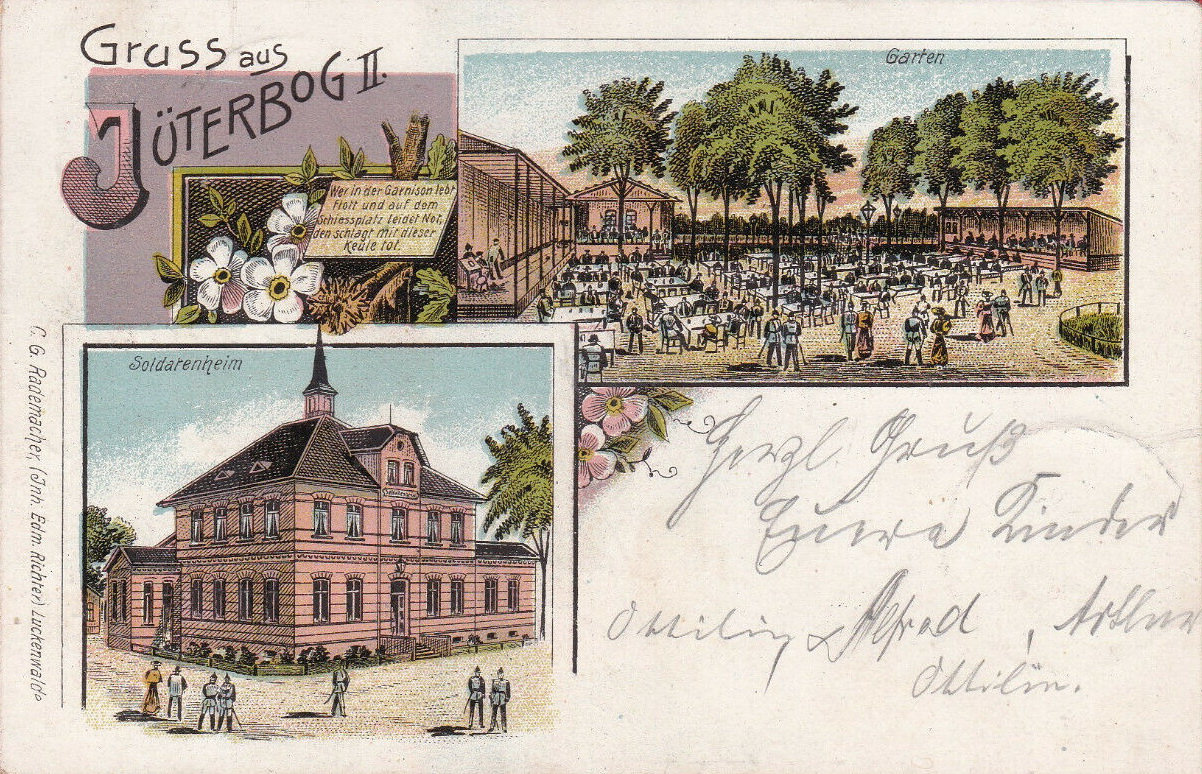 Gruss aus
JÜTERBOG II.
Garten
Wer in der Garnison lebt
flott und auf dem
Schiessplatz leidet Not,
den schlägt mit dieser
Keule tot.
Soldatenheim
C. G. Rademacher, (Inh. Edm. Richter) Luckenwalde
Herzl. Gruß
Euere Kinder
Ottilie, Alfred, Arthur
Ottilie.